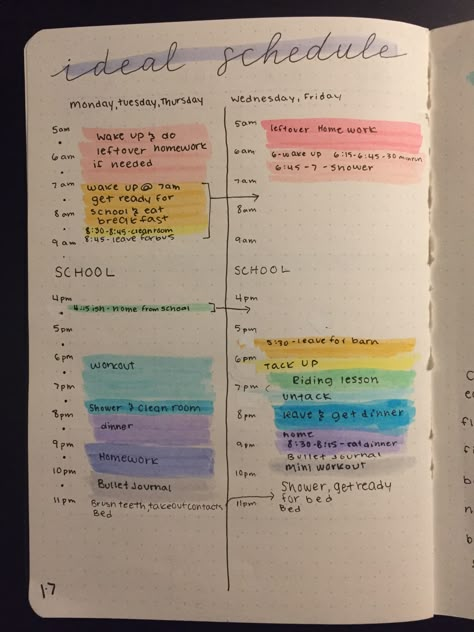 ideal schedule
monday, tuesday, Thursday
5am
wake up & do
leftover homework
6am
if needed
7am
wake up @ 7am
get ready for
8am
school & eat
breakfast
8:30-8:45-clean room
9am
8:45-leave for bus
SCHOOL
4pm
4:15ish-home from school
5pm
6pm
workout
7pm
Shower & clean room
8pm
dinner
9pm
Homework
10pm
Bullet Journal
11pm
Brush teeth, take out contacts,
Bed
Wednesday, Friday
5am
leftover Home work
6am
6-wake up 6:15-6:45-30 min run
6:45-7-shower
7am
8am
9am
SCHOOL
4pm
5pm
5:30-leave for barn
6pm
TACK UP
Riding lesson
7pm
untack
8pm
leave & get dinner
home
9pm
eat dinner
Bullet Journal
10pm
mini workout
Shower, get ready
for bed
11pm
Bed
1.7